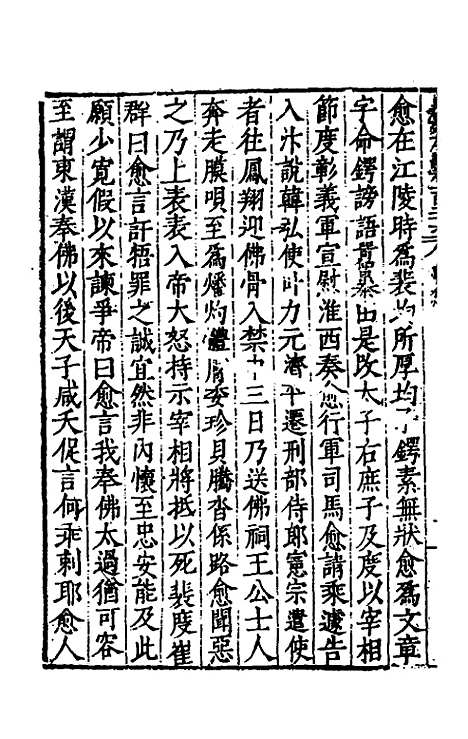 愈在江陵時爲裴均所厚均子鍔素無狀愈爲文章
字命鍔謗語囂暴由是改太子右庶子及度以宰相
節度彰義軍宣慰淮西奏愈行軍司馬愈請乘遽告
入汴說韓弘使叶力元濟平遷刑部侍郎憲宗遣使
者往鳳翔迎佛骨入禁中三日乃送佛祠王公士人
奔走膜唄至爲燔灼體膚委珍貝騰沓係路愈聞惡
之乃上表表入帝大怒持示宰相將抵以死裴度崔
群曰愈言訐牾罪之誠宜然非內懷至忠安能及此
願少寬假以來諫爭帝曰愈言我奉佛太過猶可容
至謂東漢奉佛以後天子咸夭促言何乖剌耶愈人